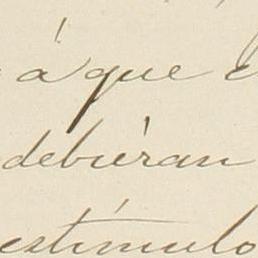 á que
debiéran
estímulo